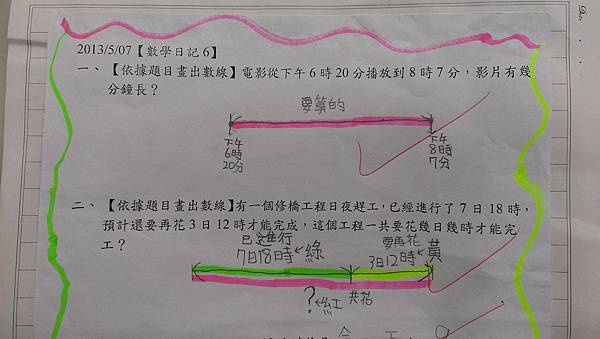 2013/5/07【數學日記6】
一、【依據題目畫出數線】電影從下午6時20分播放到8時7分,影片有幾
分鐘長?
要算的
下午
6時
20分
下午
8時
7分
二、【依據題目畫出數線】有一個修橋工程日夜趕工,已經進行了7日18時,
預計還要再花3日12時才能完成,這個工程一共要花幾日幾時才能完
工?
已進行
7日18時←綠
要再花
3日12時←黃
?←紅 共花